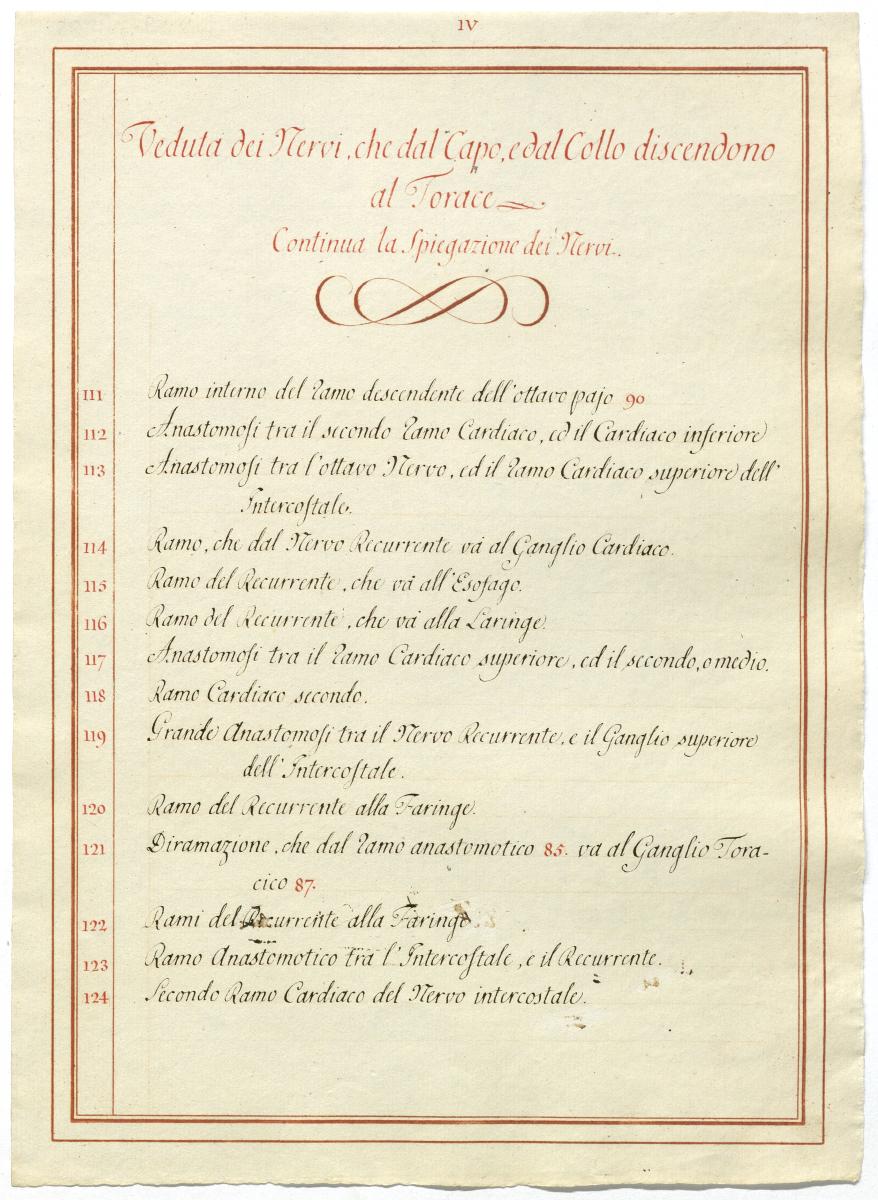 IV
Veduta dei Nervi, che dal Capo, e dal Collo discendono
al Torace
Continua la Spiegazione dei Nervi.
111 Ramo interno del Ramo descendente dell'ottavo pajo 90
112 Anastomosi tra il secondo Ramo Cardiaco, ed il Cardiaco inferiore
113 Anastomosi tra l'ottavo Nervo, ed il Ramo Cardiaco superiore dell'
Intercostale.
114 Ramo, che dal Nervo Recurrente vá al Ganglio Cardiaco.
115 Ramo del Recurrente, che vá all'Esofago.
116 Ramo del Recurrente, che vá alla Laringe.
117 Anastomosi tra il Ramo Cardiaco superiore, ed il secondo, o medio.
118 Ramo Cardiaco secondo.
119 Grande Anastomosi tra il Nervo Recurrente, e il Ganglio superiore
dell'Intercostale.
120 Ramo del Recurrente alla Faringe.
121 Diramazione, che dal Ramo anastomotico 85. va al Ganglio Tora-
cico 87.
122 Rami del Recurrente alla Faringe
123 Ramo Anastomotico tra l'Intercostale, e il Recurrente.
124 Secondo Ramo Cardiaco del Nervo intercostale.